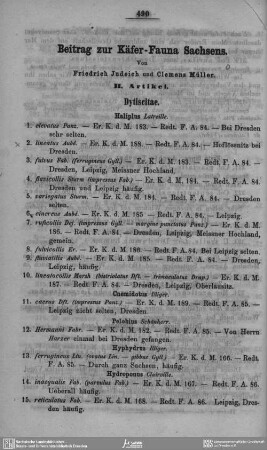 430
Beitrag zur Käfer-Fauna Sachsens.
Von
Friedrich Judeich und Clemens Müller.
II. Artikel.
Dytiscitae.
Haliplus Latreille.
1. elevatus Panz. — Er. K. d. M. 183. — Redt. F. A. 84. — Bei Dresden
sehr selten.
2. lineatus Aubé. — Er. K. d. M. 188. — Redt. F. A. 84. — bei
Dresden.
3. fulvus Fab. (ferrugineus Gyll.) — Er. K. d. M. 183. — Redt. F. A. 84.
Dresden, Leipzig, Meissner Hochland.
4. flavicollis Sturm (impressus Fab.) — Er. K. d. M. 184. — Redt. F. A. 84.
Dresden und Leipzig häufig.
5. variegatus Sturm. — Er. K. d. M. 184. — Redt. F. A. 84. — Dresden
selten.
6. cinereus Aubé. — Er. K. d. M. 185. — Redt. F. A. 84. — Leipzig.
7. ruficollis Deg. (impressus Gyll. — marginepunctatus Panz.) — Er. K. d. M.
186. — Redt. F. A. 84. — Dresden, Leipzig, Meissner Hochland,
gemein.
8. fulvicollis Er. — Er. K. d. M. 186. — Redt. F. A. 84. Bei Leipzig selten.
9. fluviatilis Aubé. — Er. K. d. M. 185. — Redt. F. A. 84. — Dresden,
Leipzig, häufig.
10. lineatocollis Marsh (bistriolatus Dft. — trimaculatus Drap.) — Er. K. d. M.
187. — Redt. F. A. 84. — Dresden, Leipzig, Oberlausitz.
Cnemidotus Illiger.
11. caesus Dft. (impressus Panz.) — Er. K. d. M. 189. — Redt. F. A. 85. —
Leipzig nicht selten, Dresden.
Pelobius Schönherr.
12. Hermanni Fabr. — Er. K. d. M. 182. — Redt. F. A. 85. — Von Herrn
einmal bei Dresden gefangen.
Hyphydrus Illiger.
13. ferrugineus Lin. (ovatus Lin. — gibbus Gyll.) — Er. K. d. M. 166. — Redt.
F. A. 85. — Durch ganz Sachsen, häufig.
Hydroporus Clairville.
14. inaequalis Fab. (parvulus Fab.) — Er. K. d. M. 167. — Redt. F. A. 86.
Ueberall häufig.
15. reticulatus Fab. — Er. K. d. M. 168. — Redt. F. A. 86. Leipzig, Dres-
den häufig.